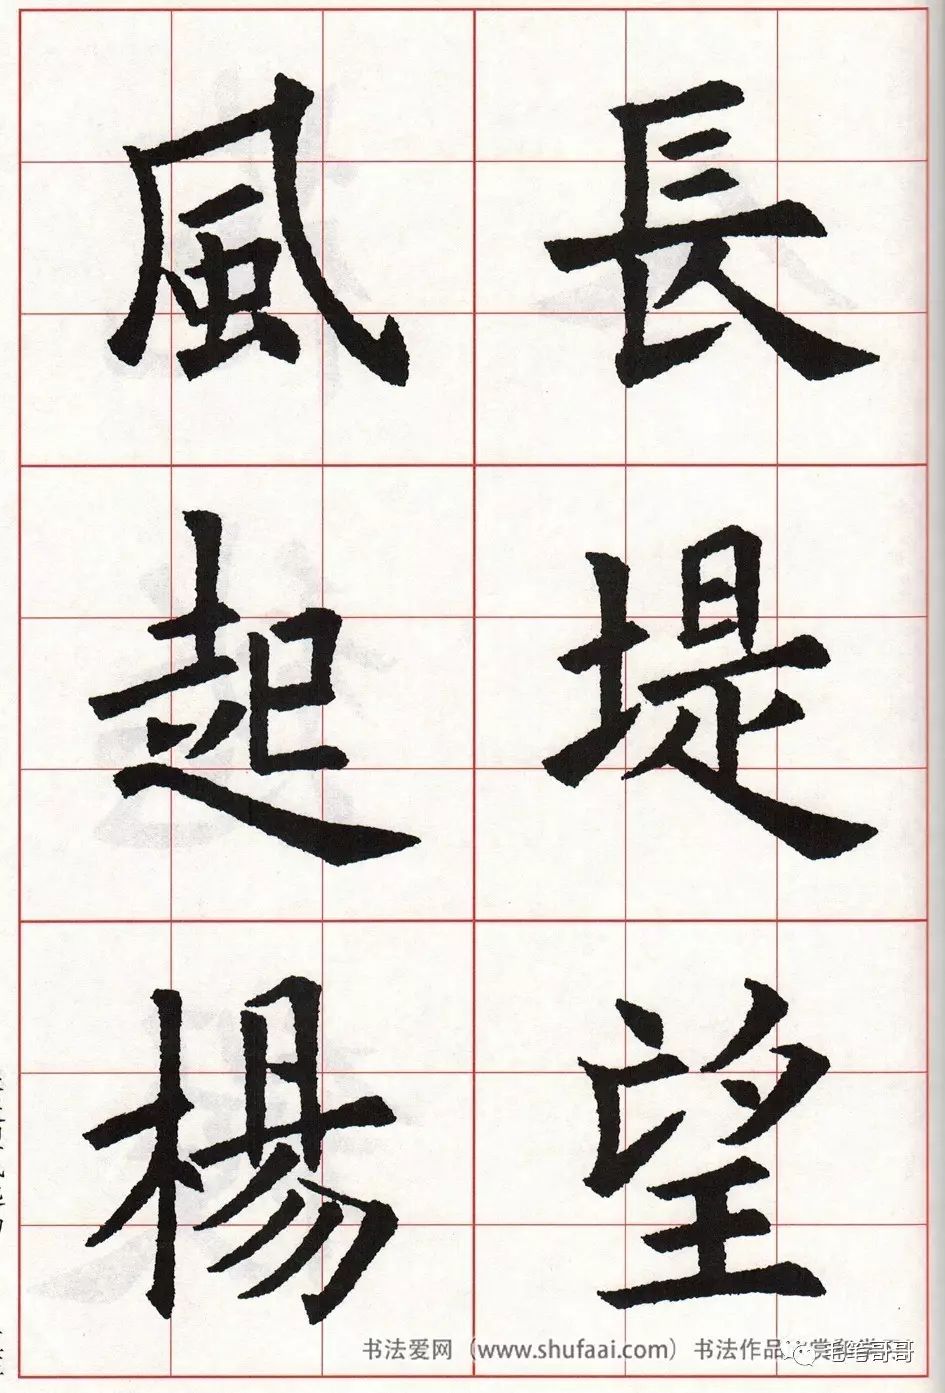 長堤望
風起楊
书法爱网（www.shufaai.com）书法作品
毛笔哥哥